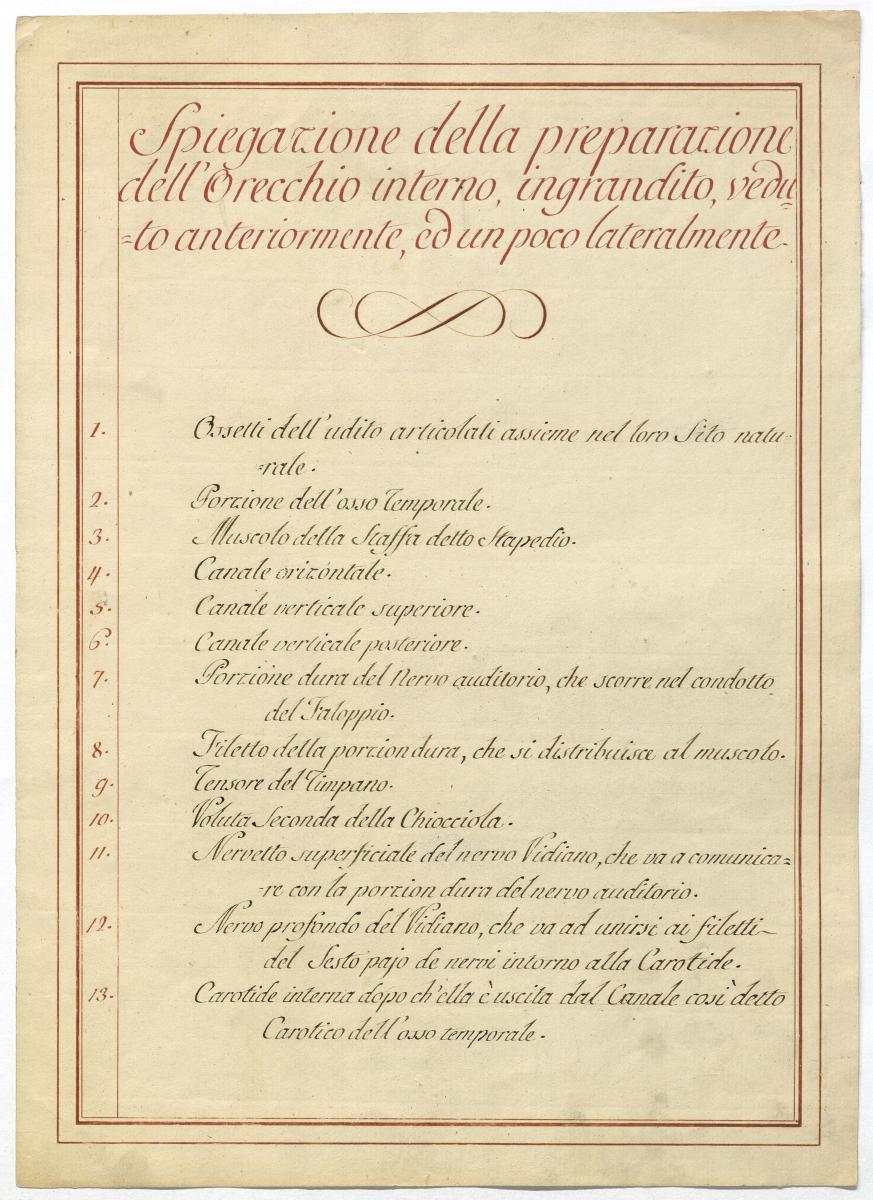 Spiegazione della preparazione
dell'Orecchio interno, ingrandito, vedu=
=to anteriormente, ed un poco lateralmente.
1. Ossetti dell'udito articolati assieme nel loro Sito natu=
=rale.
2. Porzione dell'osso Temporale.
3. Muscolo della Staffa detto Stapedio.
4. Canale orizontale.
5. Canale verticale superiore.
6. Canale verticale posteriore.
7. Porzione dura del Nervo auditorio, che scorre nel condotto
del Faloppio.
8. Filetto della porzion dura, che si distribuisce al muscolo.
9. Tensore del Timpano.
10. Voluta Seconda della Chiocciola.
11. Nervetto superficiale del nervo Vidiano, che va a comunica=
=re con la porzion dura del nervo auditorio.
12. Nervo profondo del Vidiano, che va ad unirsi ai filetti
del Sesto pajo de nervi intorno alla Carotide.
13. Carotide interna dopo ch'ella è uscita dal Canale così detto
Carotico dell'osso temporale.